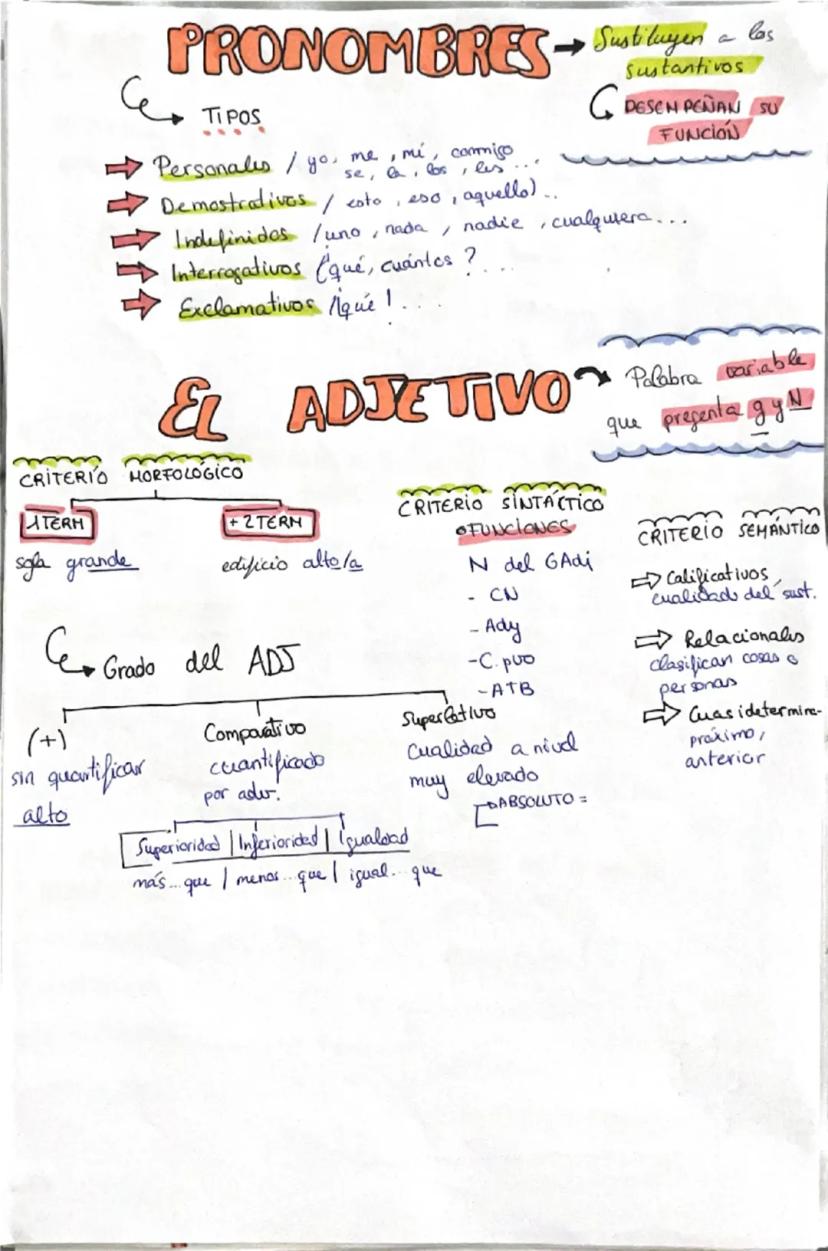 PRONOMBRES → Sustituyen a los
sustantivos
DESEMPEÑAN SU
FUNCIÓN
TIPOS
Personales / yo, me, mi, conmigo
se, la, los, les ...
Demostrativos / esto, eso, aquello)...
Indefinidos / uno, nada, nadie, cualquiera...
Interrogativos ¿qué, cuántos?...
Exclamativos /¡qué!....
EL ADJETIVO
Palabra variable
que presenta g y N
CRITERIO MORFOLÓGICO
1 TERM
+ 2 TERM
sofa grande
edificio alto/a
CRITERIO SINTÁCTICO
FUNCIONES
N del GAdj
- CN
- Ady
- C. pvo
- ATB
CRITERIO SEMÁNTICO
⇒ Calificativos,
cualidad del sust.
⇒ Relacionales
clasifican cosas o
personas
⇒ Cuasidetermina-
próximo,
anterior
Grado del ADJ
(+)
sin quantificar
alto
Comparativo
cuantificado
por adv.
Superioridad | Inferioridad | Igualdad
más...que | menos...que | igual...que
Superlativo
Cualidad a nivel
muy elevado
ABSOLUTO =